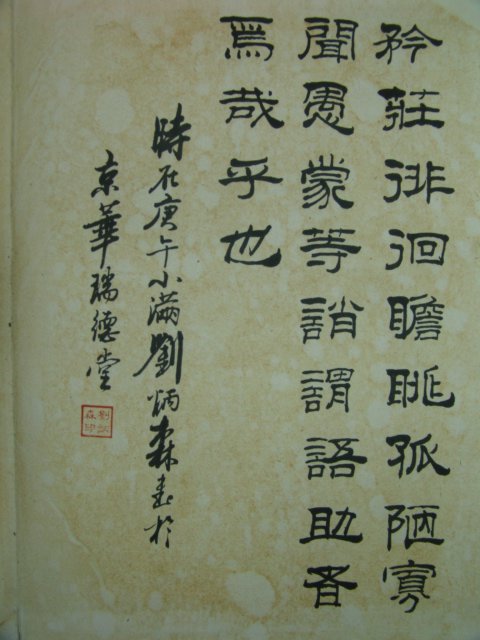 矜莊徘徊瞻眺孤陋寡
聞愚蒙等誚謂語助者
焉哉乎也
時在庚午小滿劉炳森書於
京華瑞德堂
劉炳森印